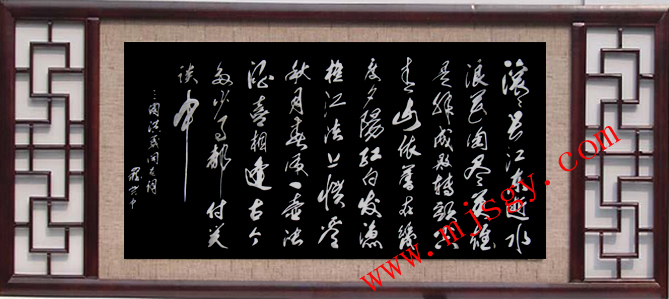 滚々長江东逝水
浪花淘尽英雄
是非成败转頭空
青山依舊在幾
度夕陽红白发渔
樵江渚上惯看
秋月春风一壶浊
酒喜相逢古今
多少事都付笑
谈中
www.mjsgy.com